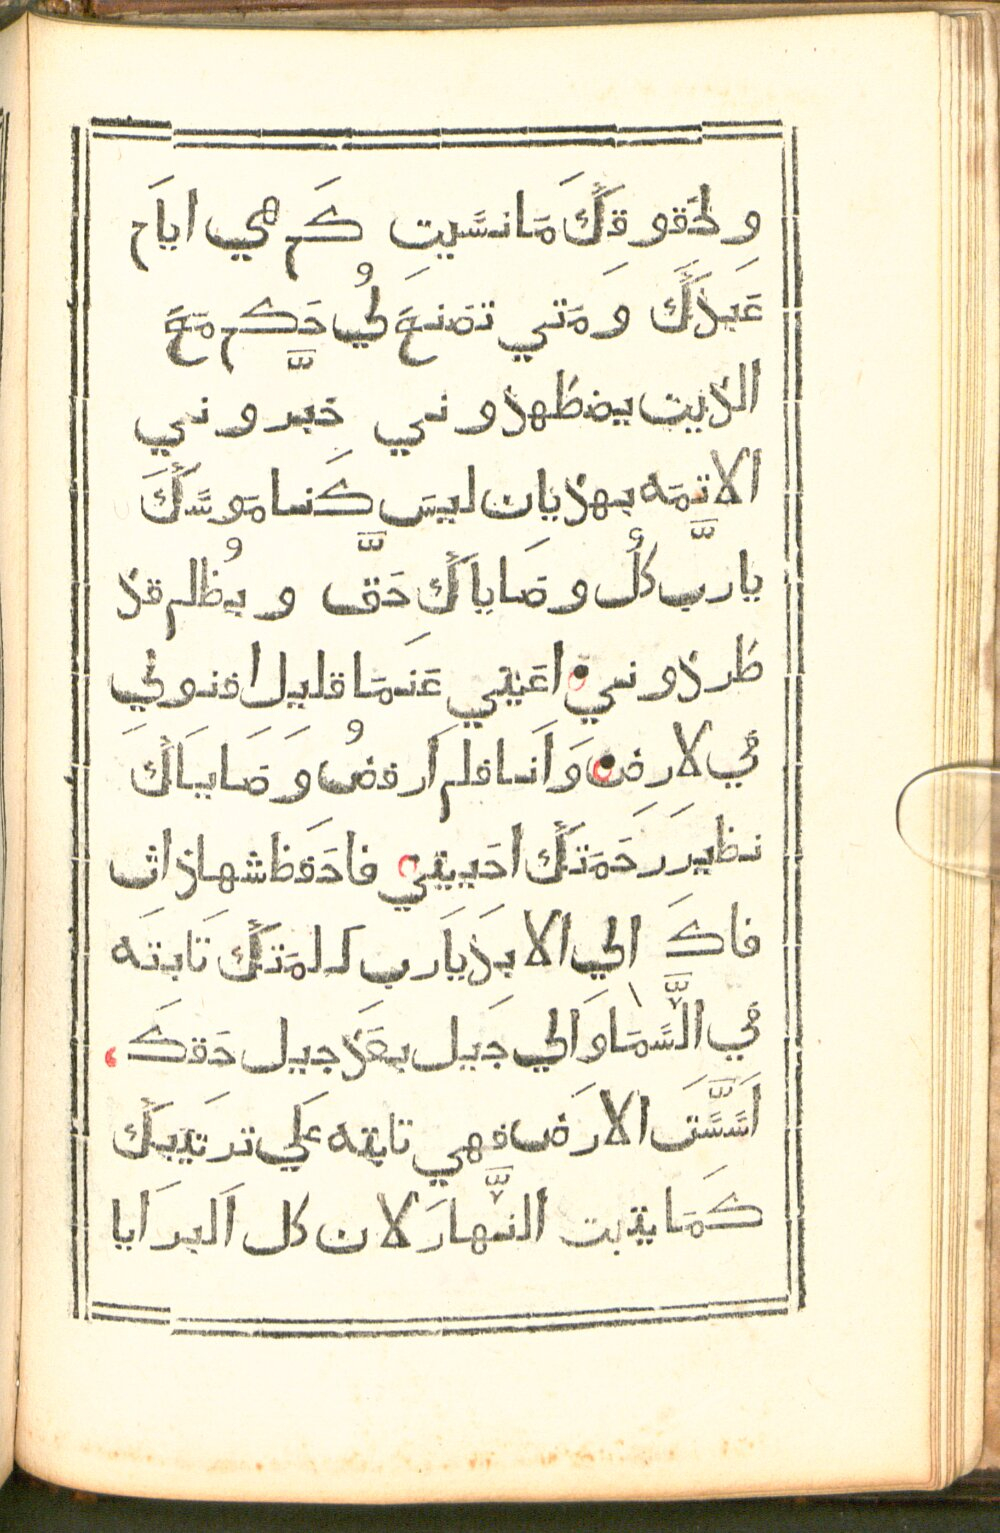 ولحقوقك ما نسيت كم هي ايام
عبدك ومتي تصنع لي حكم مع
الذين يضطهدوني خبروني
الاتمه بهذيان ليس كناموسك
يارب كل وصاياك حق وبظلم قد
طردوني اعيني عنما قليل افنوني
في لارض وانا فلم ارفض وصاياك
نظير رحمتك احييني فاحفظ شهاذات
فاك الي الابد يارب كلمتك تابته
في السما والي جيل بعد جيل حقك
اسست الارض فهي تابته علي ترتيبك
كما يتبت النهار لان كل البرايا